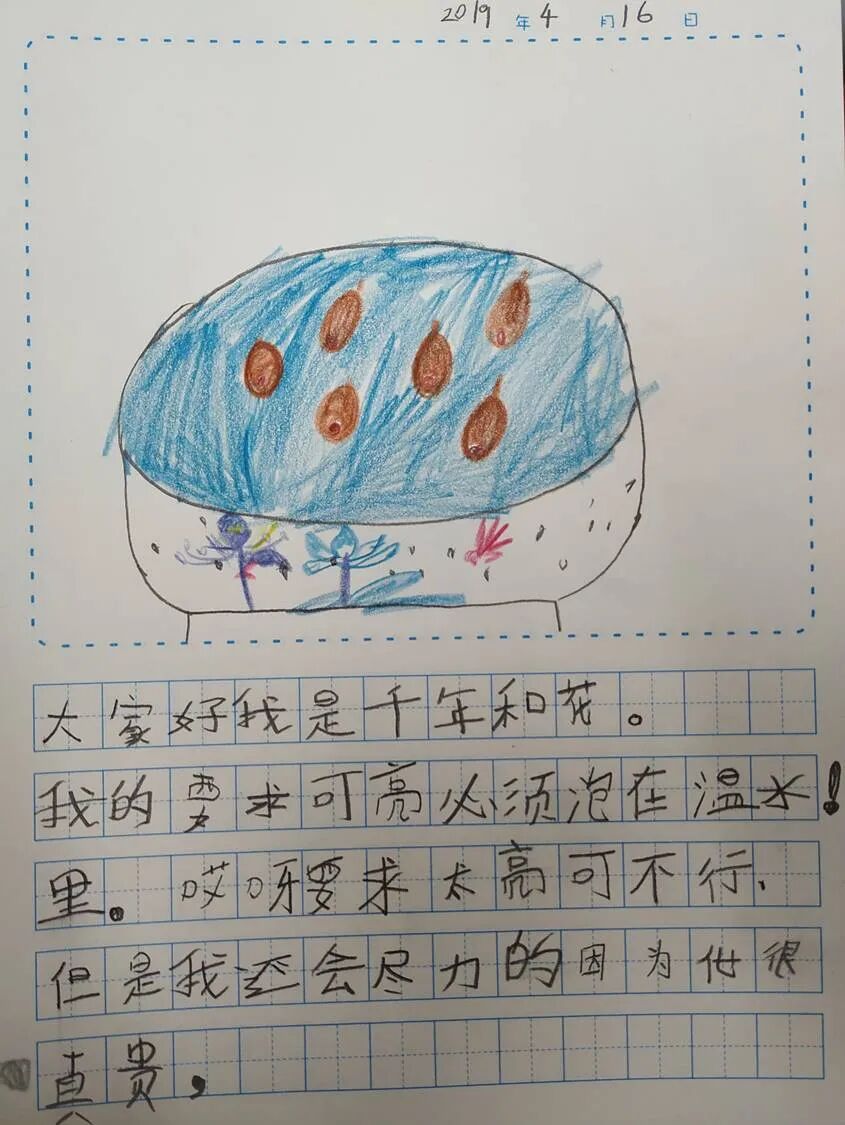 2019年4月16日
大家好我是千年和花。
我的要求可亮必须泡在温水!
里。哎呀要求太亮可不行、
但是我还会尽力的因为他很
真贵,